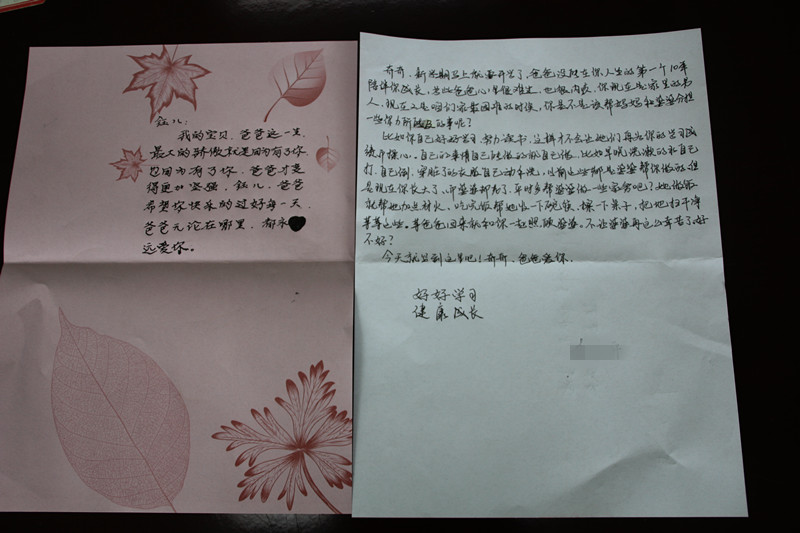 钰儿:
我的宝贝，爸爸这一生
最大的骄傲就是因为有了你
也因为有了你，爸爸才变
得更加坚强，钰儿，爸爸
希望你快乐的过好每一天
爸爸无论在哪里，都永
远爱你。
奇奇，新学期马上就要开学了，爸爸没能在你人生的第一个10年
陪伴你成长，为此爸爸心里很难过，也很内疚，你现在是家里的男
人，现在又是咱们家最困难的时候，你是不是该帮妈妈和婆婆分担
一些你力所能及的事呢？
比如你自己好好学习，努力读书，这样才不会让她们再为你的学习成
绩而操心。自己的事情自己能做的就自己做，比如早晚洗漱的水自己
打，自己倒，穿脏了的衣服自己动手洗，以前这些都是婆婆帮你做的，但
是现在你长大了，而婆婆却老了，平时多帮婆婆做一些家务吧？她做饭
就帮她加点材火，吃完饭帮她收一下碗筷，抹一下桌子，把地扫干净
等等这些。等爸爸回来就和你一起照顾婆婆。不让婆婆再这么辛苦了，好
不好？
今天就写到这里吧！奇奇，爸爸爱你。
好好学习
健康成长